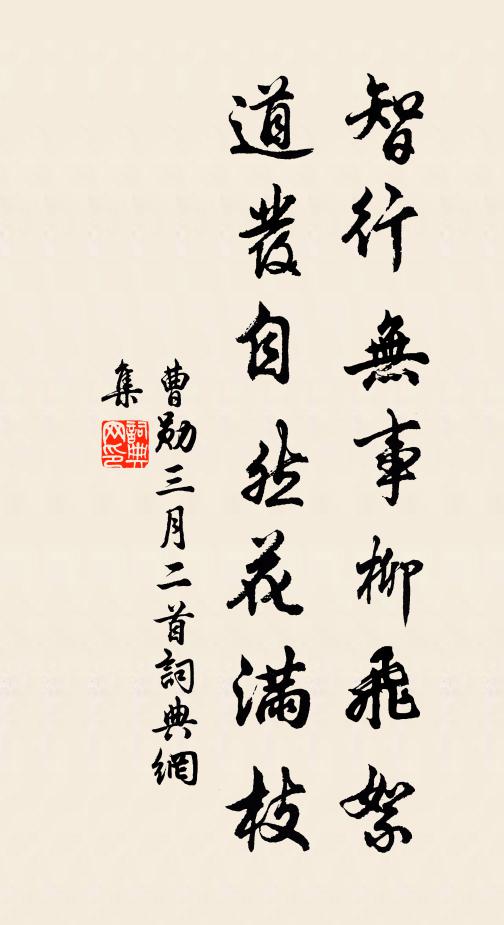 智行無事柳飛絮
道發自然花滿枝
曹勛三月二首詞典網
集
詞典网印